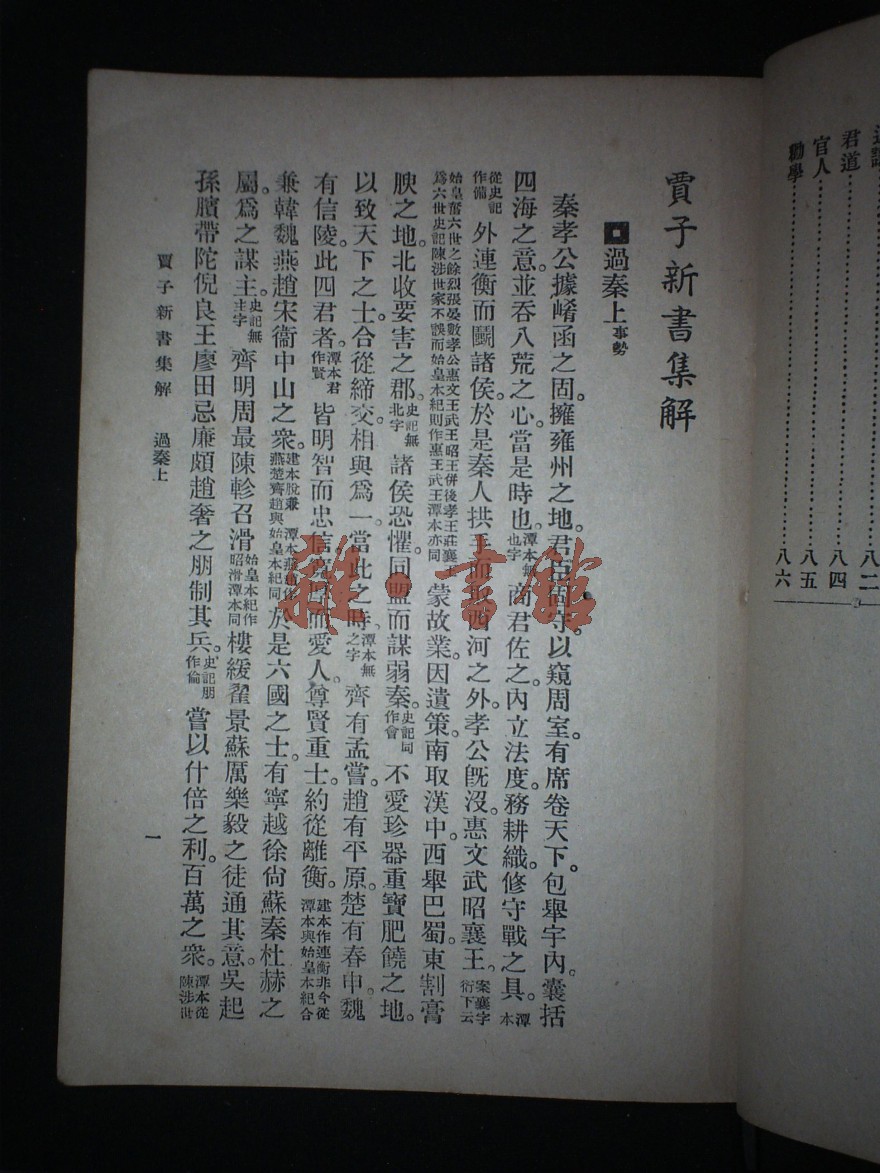 賈子新書集解
過秦上事勢
秦孝公據崤函之固。擁雍州之地。君臣固守。以窺周室。有席卷天下。包舉宇內。囊括
四海之意。並吞八荒之心。當是時也。潭本無也字商君佐之。內立法度。務耕織。修守戰之具。潭本
從史記作備外連衡而鬭諸侯。於是秦人拱手而取西河之外。孝公既沒。惠文武昭襄王。案襄字衍下云
始皇奮六世之餘烈張晏數孝公惠文王武王昭王併後孝王莊襄王爲六世史記陳涉世家不誤而始皇本紀則作惠王武王潭本亦同蒙故業。因遺策。南取漢中。西舉巴蜀。東割膏
腴之地。北收要害之郡。史記無北字諸侯恐懼。同盟而謀弱秦。史記同作會不愛珍器重寶肥饒之地。
以致天下之士。合從締交。相與爲一。當此之時。潭本無之字齊有孟嘗。趙有平原。楚有春申。魏
有信陵。此四君者。潭本君作賢皆明智而忠信。寬厚而愛人。尊賢重士。約從離衡。建本作連衡非今從潭本與始皇本紀合
兼韓魏燕趙宋衞中山之衆。建本脫兼 潭本燕趙作燕楚齊趙與始皇本紀同於是六國之士。有寧越徐尙蘇秦杜赫之
屬。爲之謀主。史記無主字齊明周最陳軫召滑始皇本紀作昭滑潭本同樓緩翟景蘇厲樂毅之徒通其意。吳起
孫臏帶陀倪良王廖田忌廉頗趙奢之朋制其兵。史記朋作倫嘗以什倍之利。百萬之衆。潭本從陳涉世
賈子新書集解 過秦上
一
君道
官人
勸學
八二
八四
八五
八六
雜·書館